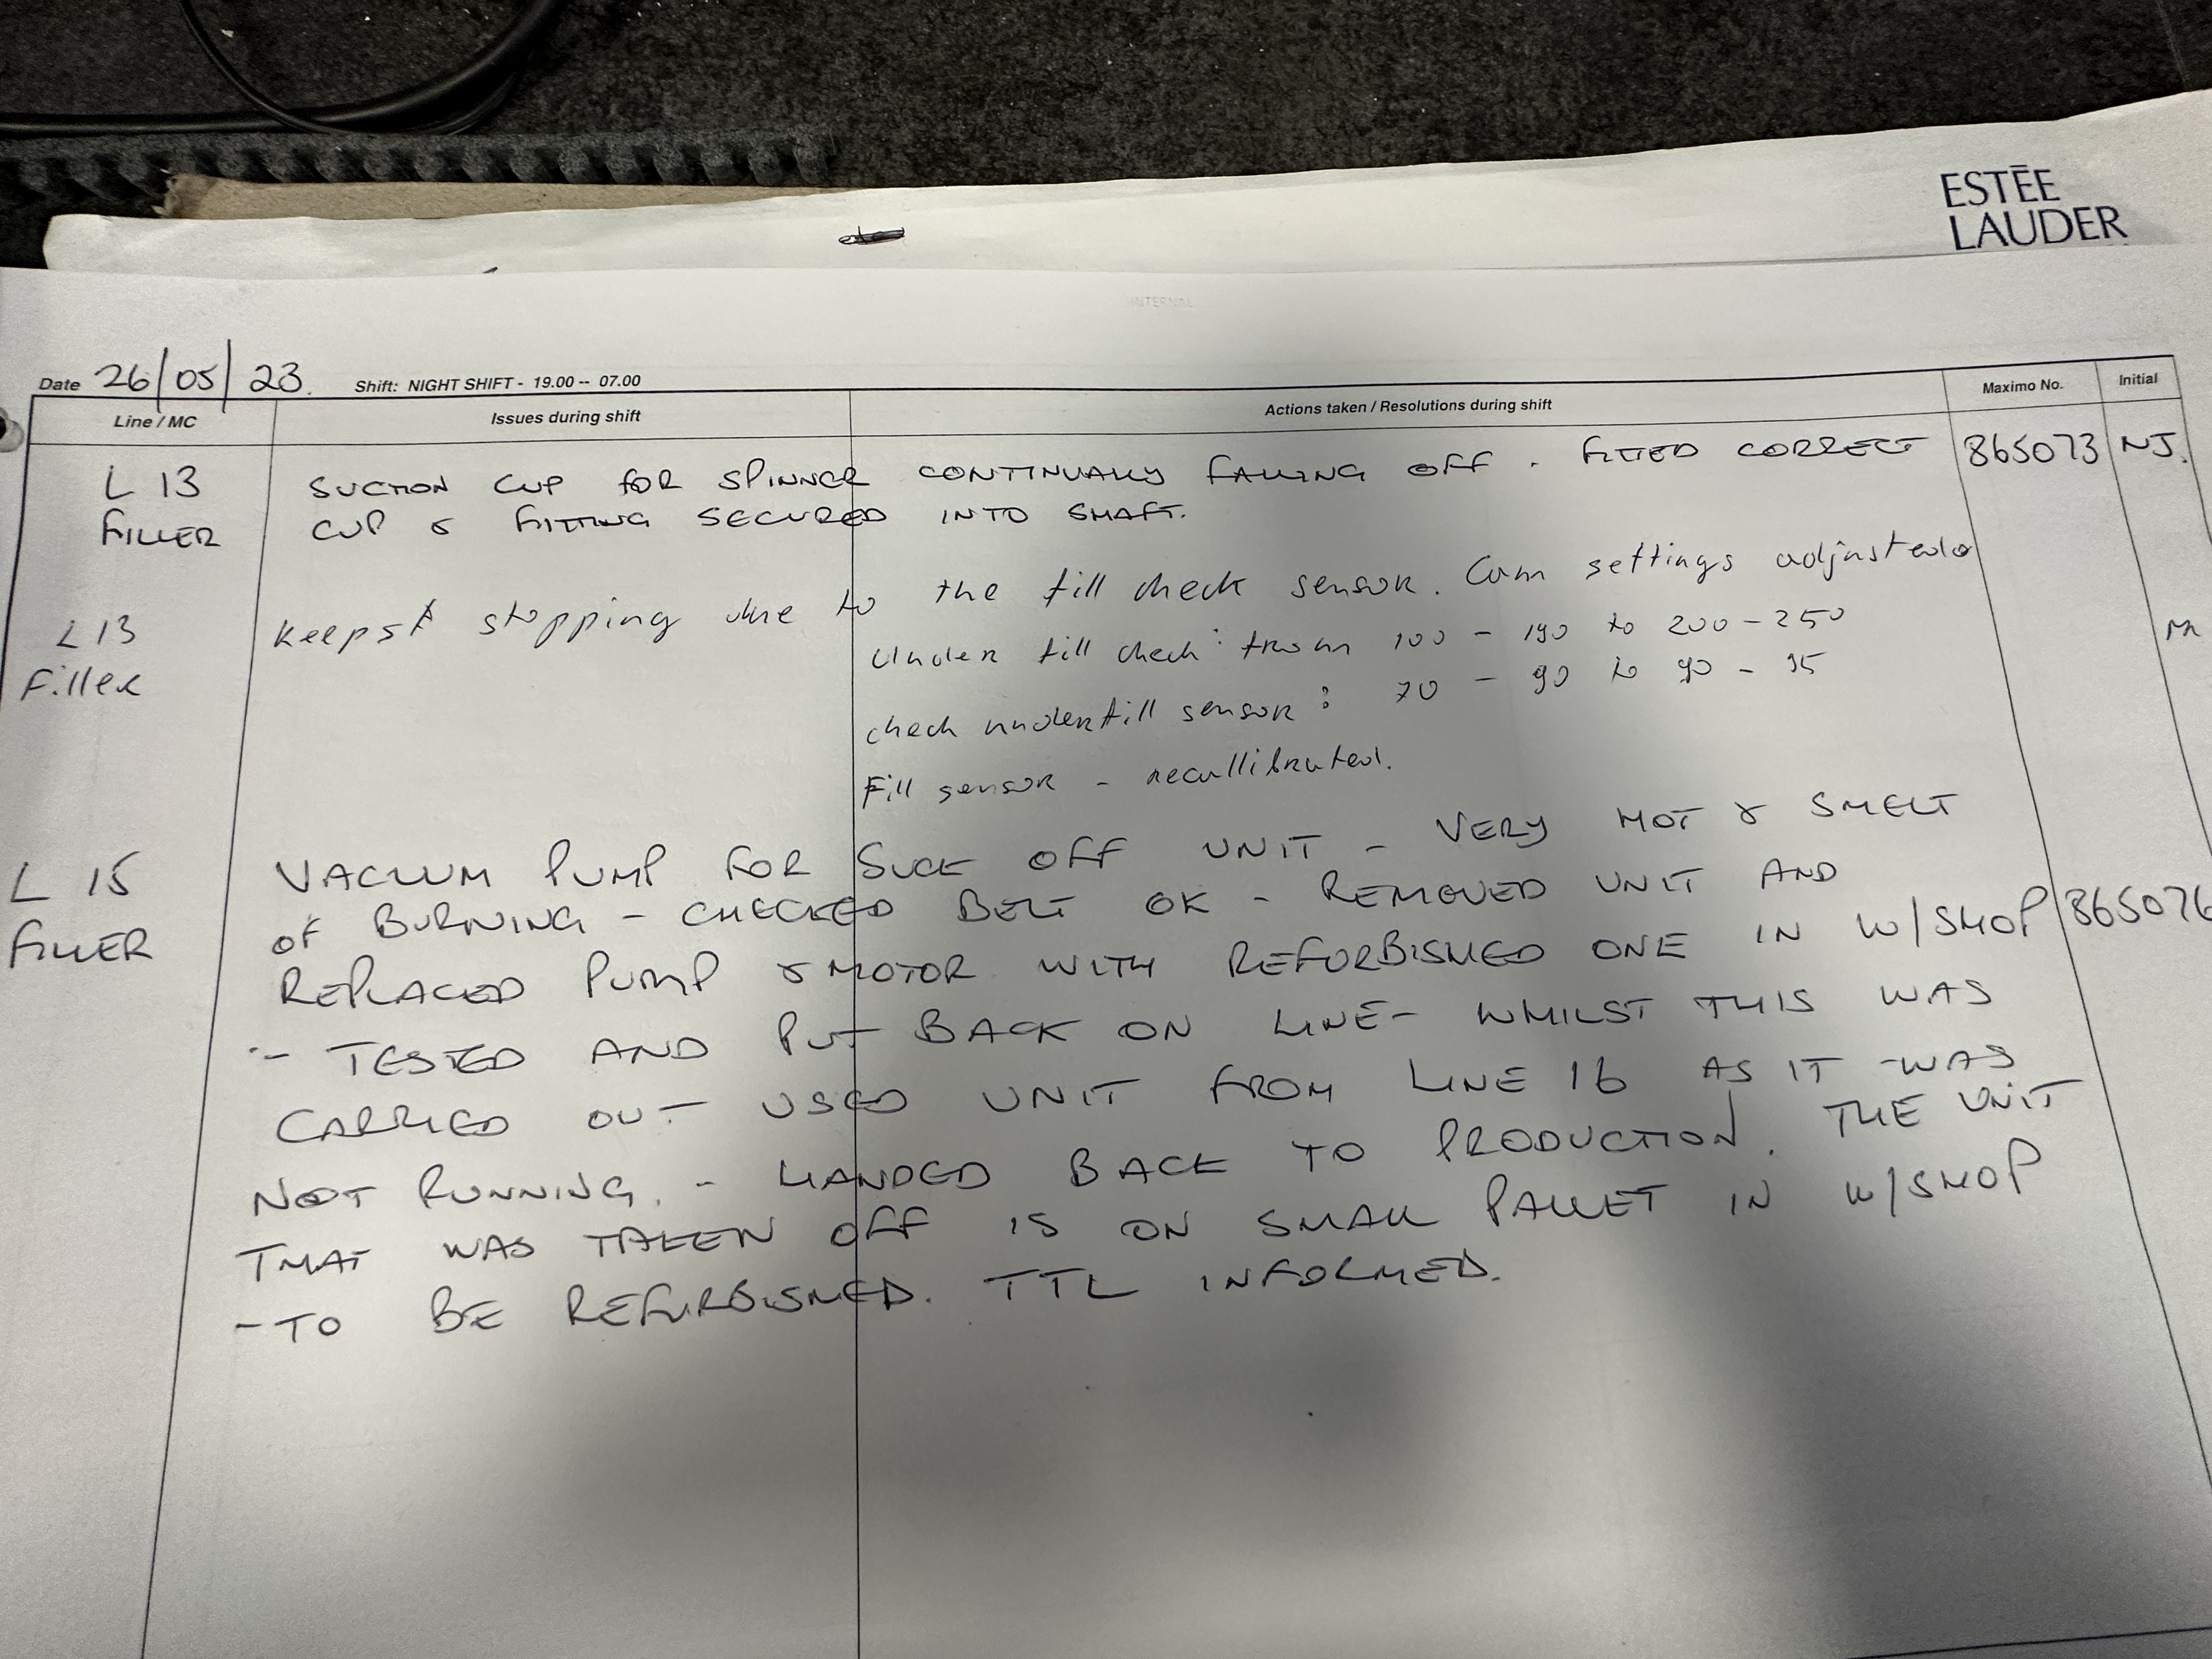 ESTĒE
LAUDER
INTERNAL
Date 26/05/23. Shift: NIGHT SHIFT - 19.00 -- 07.00
Line / MC Issues during shift Actions taken / Resolutions during shift Maximo No. Initial
L 13 SUCTION CUP FOR SPINNER CONTINUALLY FALLING OFF. FITTED CORRECT 865073 NJ.
FILLER CUP & FITTING SECURED INTO SHAFT.
L13 Keeps stopping due to the fill check sensor. Cam settings adjusted
Filler Under fill check: from 100 - 190 to 200 - 250
check underfill sensor: 70 - 90 to 90 - 95
Fill sensor - recallibrated.
L 15 VACUUM PUMP FOR SUCK OFF UNIT - VERY HOT & SMELT
FILLER OF BURNING - CHECKED BELT OK - REMOVED UNIT AND
REPLACED PUMP & MOTOR WITH REFURBISHED ONE IN W/SHOP 865076
- TESTED AND PUT BACK ON LINE - WHILST THIS WAS
CARRIED OUT USED UNIT FROM LINE 16 AS IT WAS
NOT RUNNING. - HANDED BACK TO PRODUCTION. THE UNIT
THAT WAS TAKEN OFF IS ON SMALL PALLET IN W/SHOP
- TO BE REFURBISHED. TTL INFORMED.